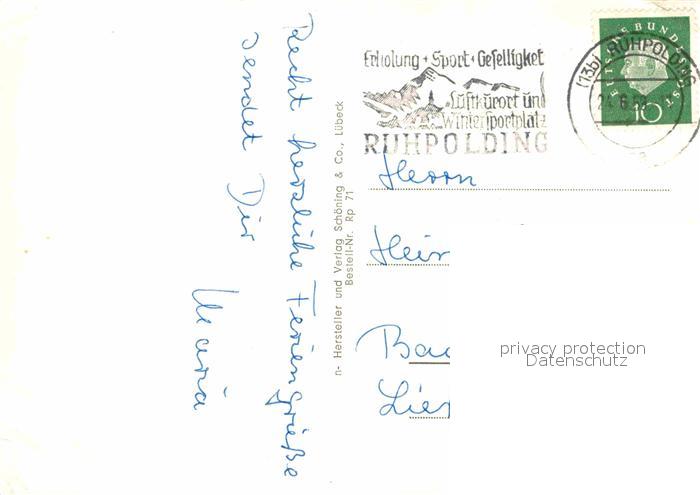 Recht herzliche Feriengrüße
sendet Dir
Maria
n- Hersteller und Verlag Schöning & Co., Lübeck
Bestell-Nr. Rp 71
Erholung + Sport + Geselligkeit
Luftkurort und
Wintersportplatz
RUHPOLDING
(13b) RUHPOLDING
10
Herrn
Hein
Bau
Lie
privacy protection
Datenschutz